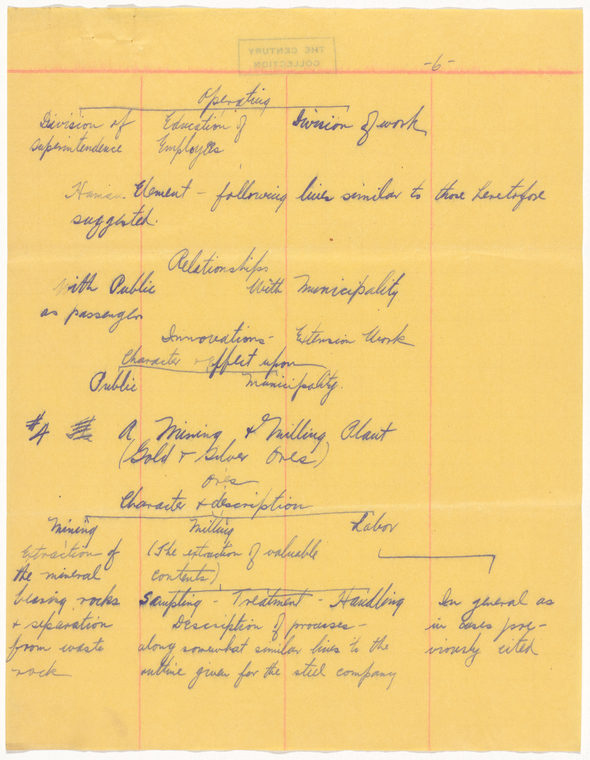 THE CENTURY
COLLECTION
-6-
Operating
Division of Superintendence
Education of Employees
Division of work
Human Element - following lines similar to those heretofore
suggested.
Relationships
With Public as passengers
With Municipality
Innovations - Extension Work
Character & effect upon
Public Municipality.
#4 A Mining & Milling Plant
(Gold & Silver Ores)
Ores
Character & description
Mining
Extraction of
the mineral
bearing rocks
& separation
from waste
rock
Milling
(The extraction of valuable
contents)
Sampling - Treatment - Handling
Description of processes -
along somewhat similar lines to the
outline given for the steel company
Labor
In general as
in cases pre-
viously cited